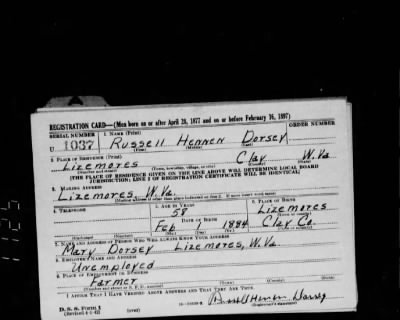 REGISTRATION CARD—(Men born on or after April 28, 1877 and on or before February 16, 1897)
SERIAL NUMBER 1. NAME (Print) ORDER NUMBER
U 1037 Russell Hennen Dorsey
(First) (Middle) (Last)
2. PLACE OF RESIDENCE (Print)
Lizemores Clay W.Va
(Number and street) (Town, township, village, or city) (County) (State)
[THE PLACE OF RESIDENCE GIVEN ON THE LINE ABOVE WILL DETERMINE LOCAL BOARD
JURISDICTION; LINE 2 OF REGISTRATION CERTIFICATE WILL BE IDENTICAL]
3. MAILING ADDRESS
Lizemores, W.Va.
[Mailing address if other than place indicated on line 2. If same insert word same]
4. TELEPHONE 5. AGE IN YEARS 6. PLACE OF BIRTH
58 Lizemores
DATE OF BIRTH
Feb 7 1884 Clay Co.
7. NAME AND ADDRESS OF PERSON WHO WILL ALWAYS KNOW YOUR ADDRESS
Mary Dorsey Lizemores, W.Va.
8. EMPLOYER'S NAME AND ADDRESS
Unemployed
9. PLACE OF EMPLOYMENT OR BUSINESS
Farmer
(Number and street or R. F. D. number)
I AFFIRM THAT I HAVE VERIFIED ABOVE ANSWERS AND THAT THEY ARE TRUE.
D. S. S. Form 1
(Revised 4-1-42) (over)
Russell Hennen Dorsey
(Registrant's signature)